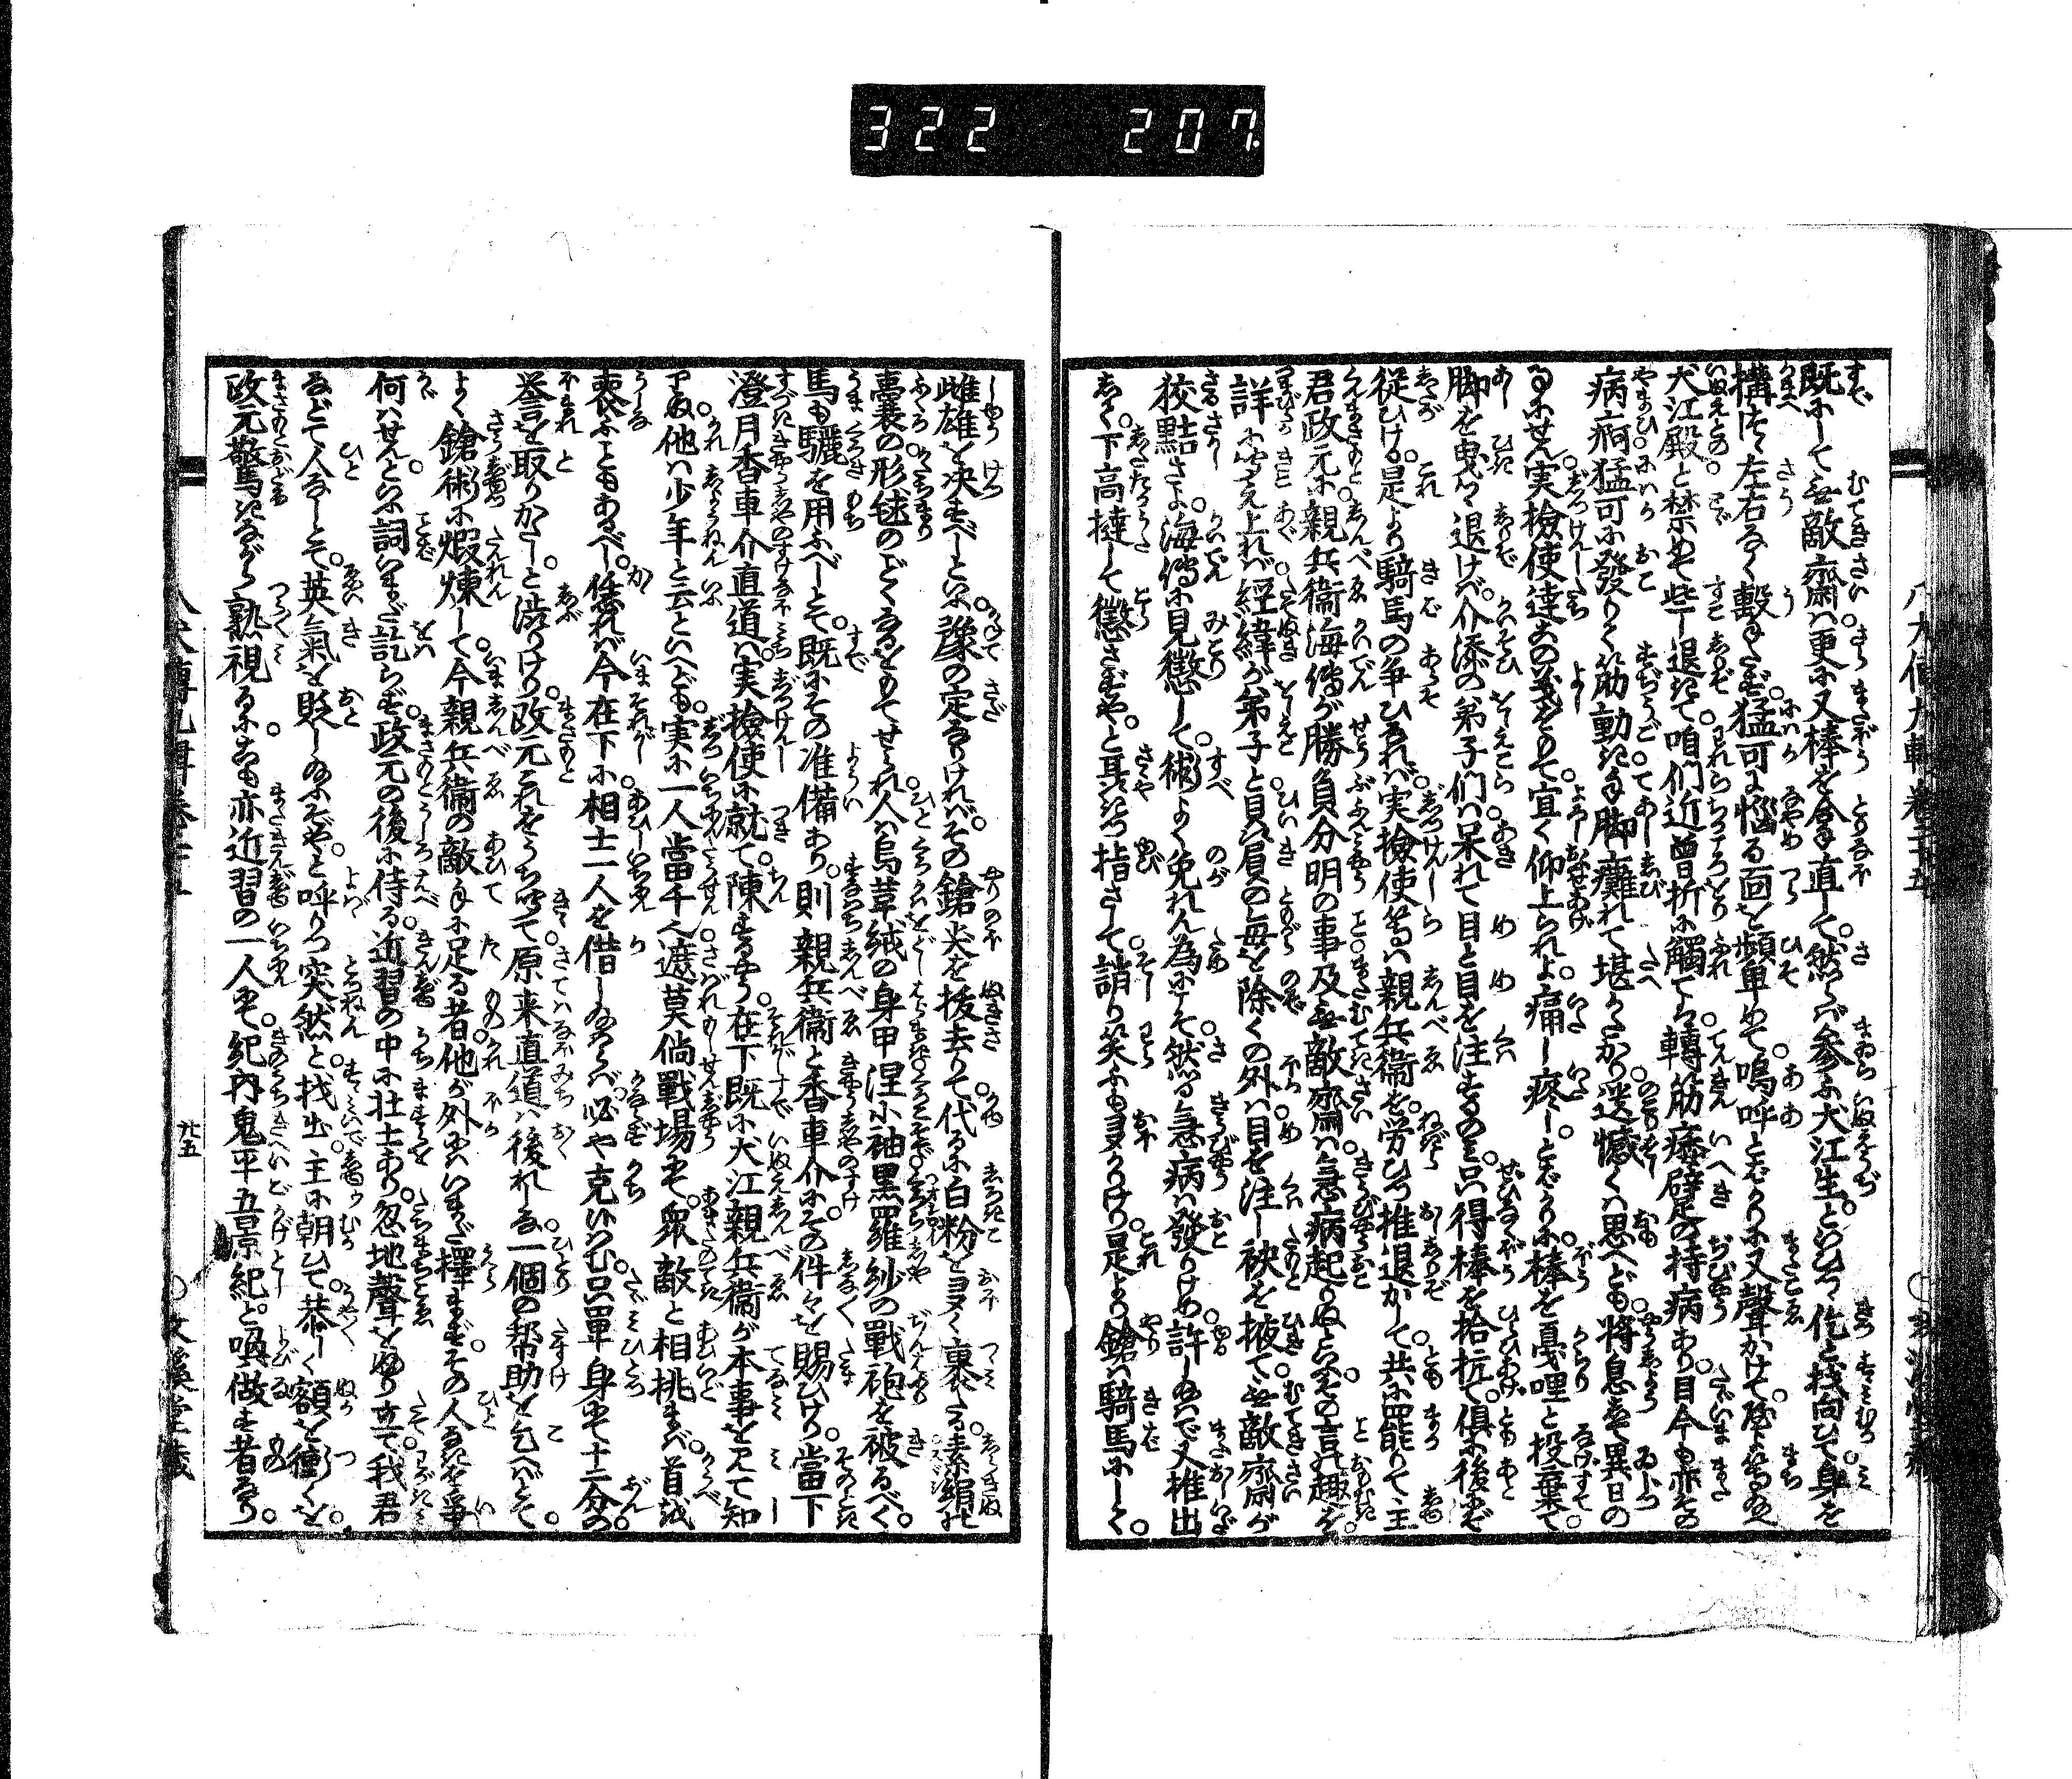 322 207.
既にして無敵齋は更に又棒を合拿直して然らば参ふ犬江生といひつゝ仡と找向ひて身を
構つゝ左右なく轂もせず猛可に惱る面を頻單めて嗚呼とばかりに又聲かけて等ゐ
犬江殿と禁めて些し退きて咱們近曽折に觸ては轉筋痿躄の持病あり目今も亦その
病痾猛可に發りて筋動き手脚癱れて堪かたかり遺憾くは思へども將息して異日の
るにせん実檢使達この義をもて宜く仰上られよ痛し疼しとばかりに棒を戞哩と投棄て
脚を曳つゝ退けば介添の弟子們は呆れて目と目を注するのみ只得棒を拾抗て倶に後にぞ
從ひける是より騎馬の争ひなれば実檢使等は親兵衞を労ひつ推退かして共に罷りて主
君政元に親兵衞海傳が勝負分明の事及無敵齋は急病起りぬといふその言の趣を
詳に聞え上れば經緯が弟子と贔屓の毎を除くの外は目を注し袂を掖て無敵齋が
狡黠さよ海傳に見懲して術よく免れん為にこそ然る急病は發りけめ許し給はで又推出
して下高撻して懲さばや と耳語つ指さして誚り笑ふも多かりけり是より鎗は騎馬にして
雌雄を決すべしといふ豫の定なりければその鎗尖を抜去りて代るに白粉を多く裹たる素絹の
嚢の形毬のごとくなるをもてせられ人は烏革絨の身甲涅小袖黒羅紗の戰袍を被るべく
馬も驪を用ふべしとて既にその准備あり則親兵衞と香車介にその件々を賜ひけり當下
澄月香車介直道は実檢使に就て陳ずるやう在下既に犬江親兵衞が本事を見て知
りぬ他は少年と云といへども実に一人當千也遮莫倘戰場にて衆敵と相挑まば首級
喪ふこともあるべし恁れば今在下に相士一人を借し給はゞ必や克いはむ只單身にて十二分の
誉を取りがたしと渋りけり政元これをうち聞て原来直道は後れしな一個の帮助を乞へばとて
よく鎗術に煆煉して今親兵衞の敵手に足る者他が外にはいまだ擇まずその人なきを争
何はせんといふ詞いまだ訖らず政元の後に侍る近習の中に壮士あり忽地聲をふり立て我君
などて人なしとて英氣を貶し給ふぞやと呼りつ突然と找出主に朝ひて恭しく額を衝くを
政元驚きながら熟視るにこも亦近習の一人にて紀内鬼平五景紀と喚做す者なり
八犬傳九輯卷二十五
廿五
文溪堂藏